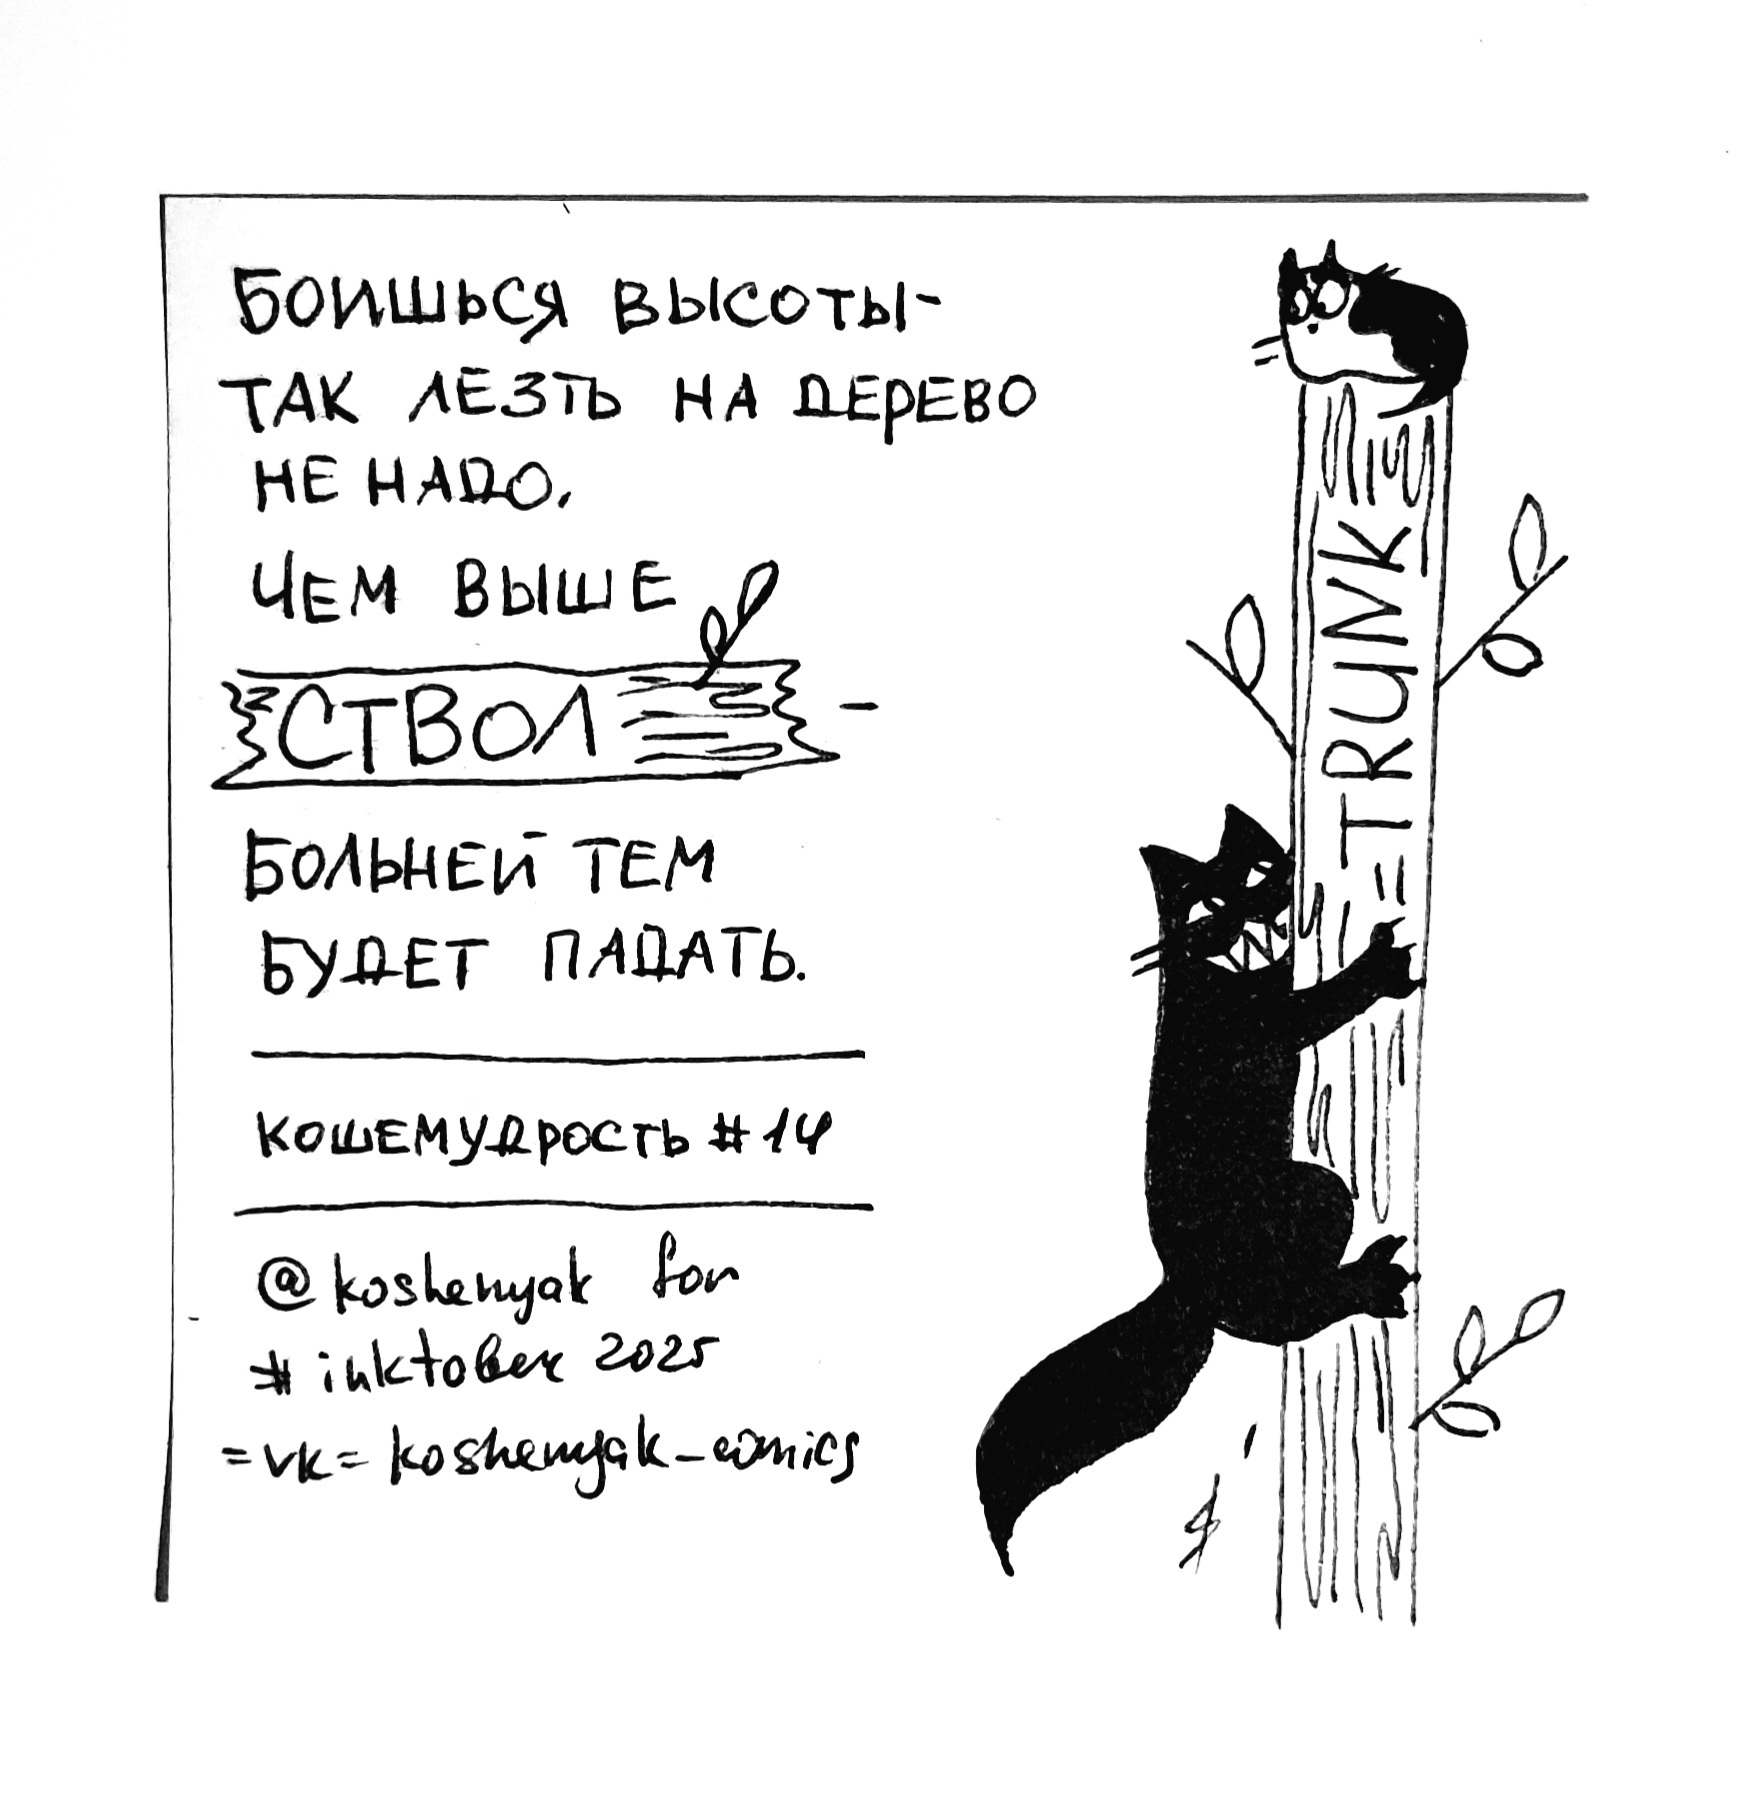 БОИШЬСЯ ВЫСОТЫ-
ТАК ЛЕЗТЬ НА ДЕРЕВО
НЕ НАДО.
ЧЕМ ВЫШЕ
СТВОЛ -
БОЛЬНЕЙ ТЕМ
БУДЕТ ПАДАТЬ.
КОШЕМУДРОСТЬ #14
@koshenyak for
#inktober 2025
=vk= koshenyak_comics
=TRUNK=